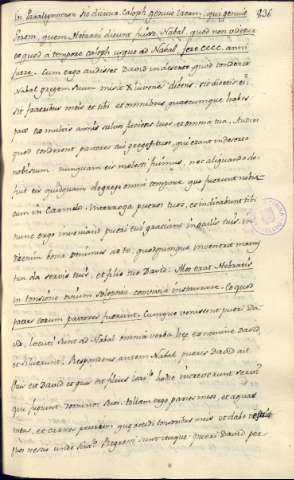 936
In Paralipomenon sic dicitur Caleph genuit Iraam, qui genuit
Iorem, quem Hebraei dicunt fuisse Nabal, quod non
eo quod a tempore Caleph usque ad Nabal, fere cccc. anni
fuere. Cum ergo audisset David in deserto quod tonderet
Nabal gregem suum misit X iuvenes dicens: sic dicetis
sit fratribus meis et tibi et omnibus quaecumque habes
pax ex multis annis salvos faciens tuos, et omnia tua. Audivi
quod tonderent pastores tui greges tuos, qui erant in deserto
nobiscum nunquam eis molesti fuimus, nec aliquando de
fuit eis quidquam de grege omni tempore quo fuerunt nobis
cum in Carmelo. Interroga pueros tuos, et indicabunt tibi
nunc ergo inveniant pueri tui gratiam in oculis tuis, in
diem enim bonam venimus ad te, quodcumque invenerit manus
tua da servis tuis, et filio tuo David. Mos erat Hebraeis
in tonsione ovium solennia convivia instaurare. Eo quod
patres eorum pastores fuerunt. Cumque venissent pueri Da
vid, locuti sunt ad Nabal omnia verba haec ex nomine David
et siluerunt. Respondens autem Nabal pueris David ait
Quis est David et quis est filius Isai? hodie increverunt servi
qui fugiunt dominos suos. Tollam ergo panes meos, et aquas
meas, et carnes pecorum, quae occidi tonsoribus meis et dabo
viris nescio unde sint. Regressi sunt itaque pueri David per